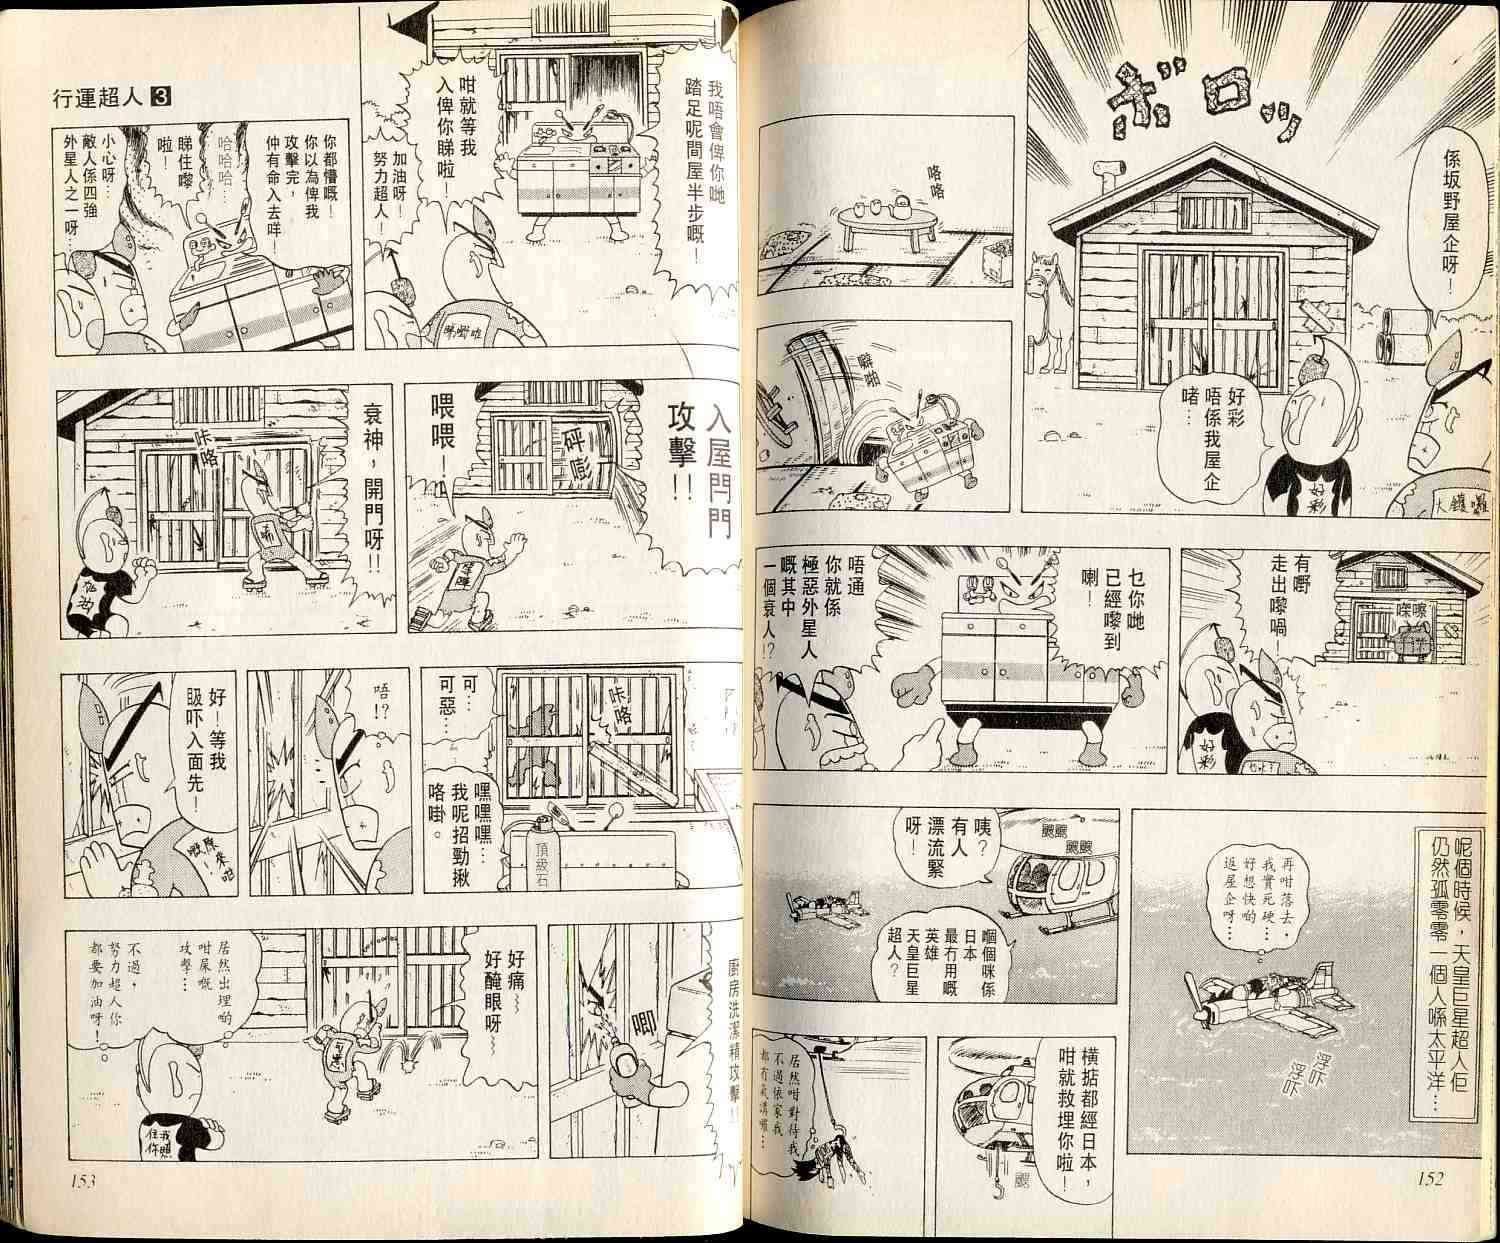 係坂野屋企呀！
ボロッ
好彩
唔係我屋企
啫…
好彩
大鑊囉
咯咯
噼啪
有嘢
走出嚟喎！
嚓嚓
好彩
乜你哋
已經嚟到
喇！
唔通
你就係
極惡外星人
嘅其中
一個衰人!?
呢個時候，天皇巨星超人佢
仍然孤零零一個人喺太平洋…
再咁落去，
我實死硬…
好想快啲
返屋企呀…
浮吓
浮吓
咦？
有人
漂流緊
呀！
颼颼
颼颼
嗰個咪係
日本
最冇用嘅
英雄
天皇巨星
超人？
橫掂都經日本，
咁就救埋你啦！
颼
居然咁對待我
不過依家我
都冇氣講嘞…
152
行運超人3
我唔會俾你哋
踏足呢間屋半步嘅！
咁就等我
入俾你睇啦！
加油呀！
努力超人！
你都懵嘅！
你以為俾我
攻擊完，
仲有命入去咩！
哈哈
哈哈…
睇住嚟
啦！
小心呀…
敵人係四強
外星人之一呀…
入屋閂門
攻擊!!
砰嘭
喂喂！
衰神，開門呀!!
咔咯
可…
可惡…
咔咯
嘿嘿嘿…
我呢招勁揪
咯啩。
頂級石
唔!?
好！等我
眼吓入面先！
原來咁
㗎！
廚房洗潔精攻擊!!
唧
好痛～
好醃眼呀～
可惡
居然出埋啲
咁屎嘅
攻擊…
不過，
努力超人你
都要加油呀！
我照
住你
153